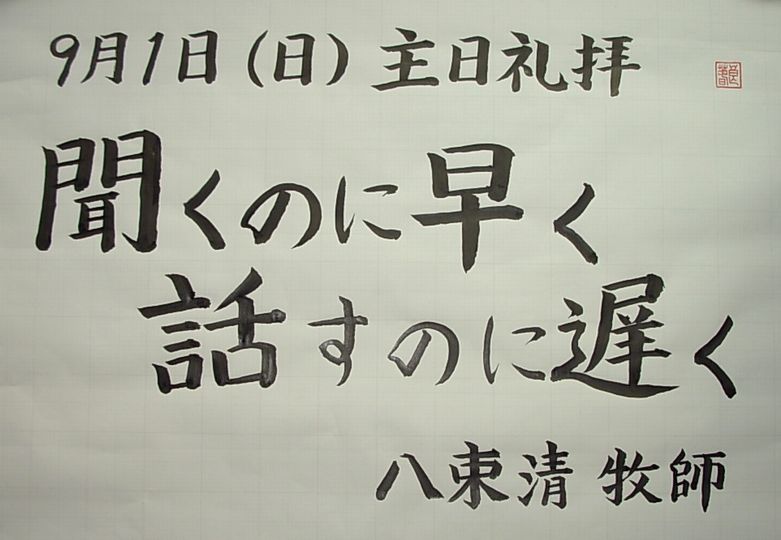 9月1日(日)主日礼拝
聞くのに早く
話すのに遅く
八束清 牧師